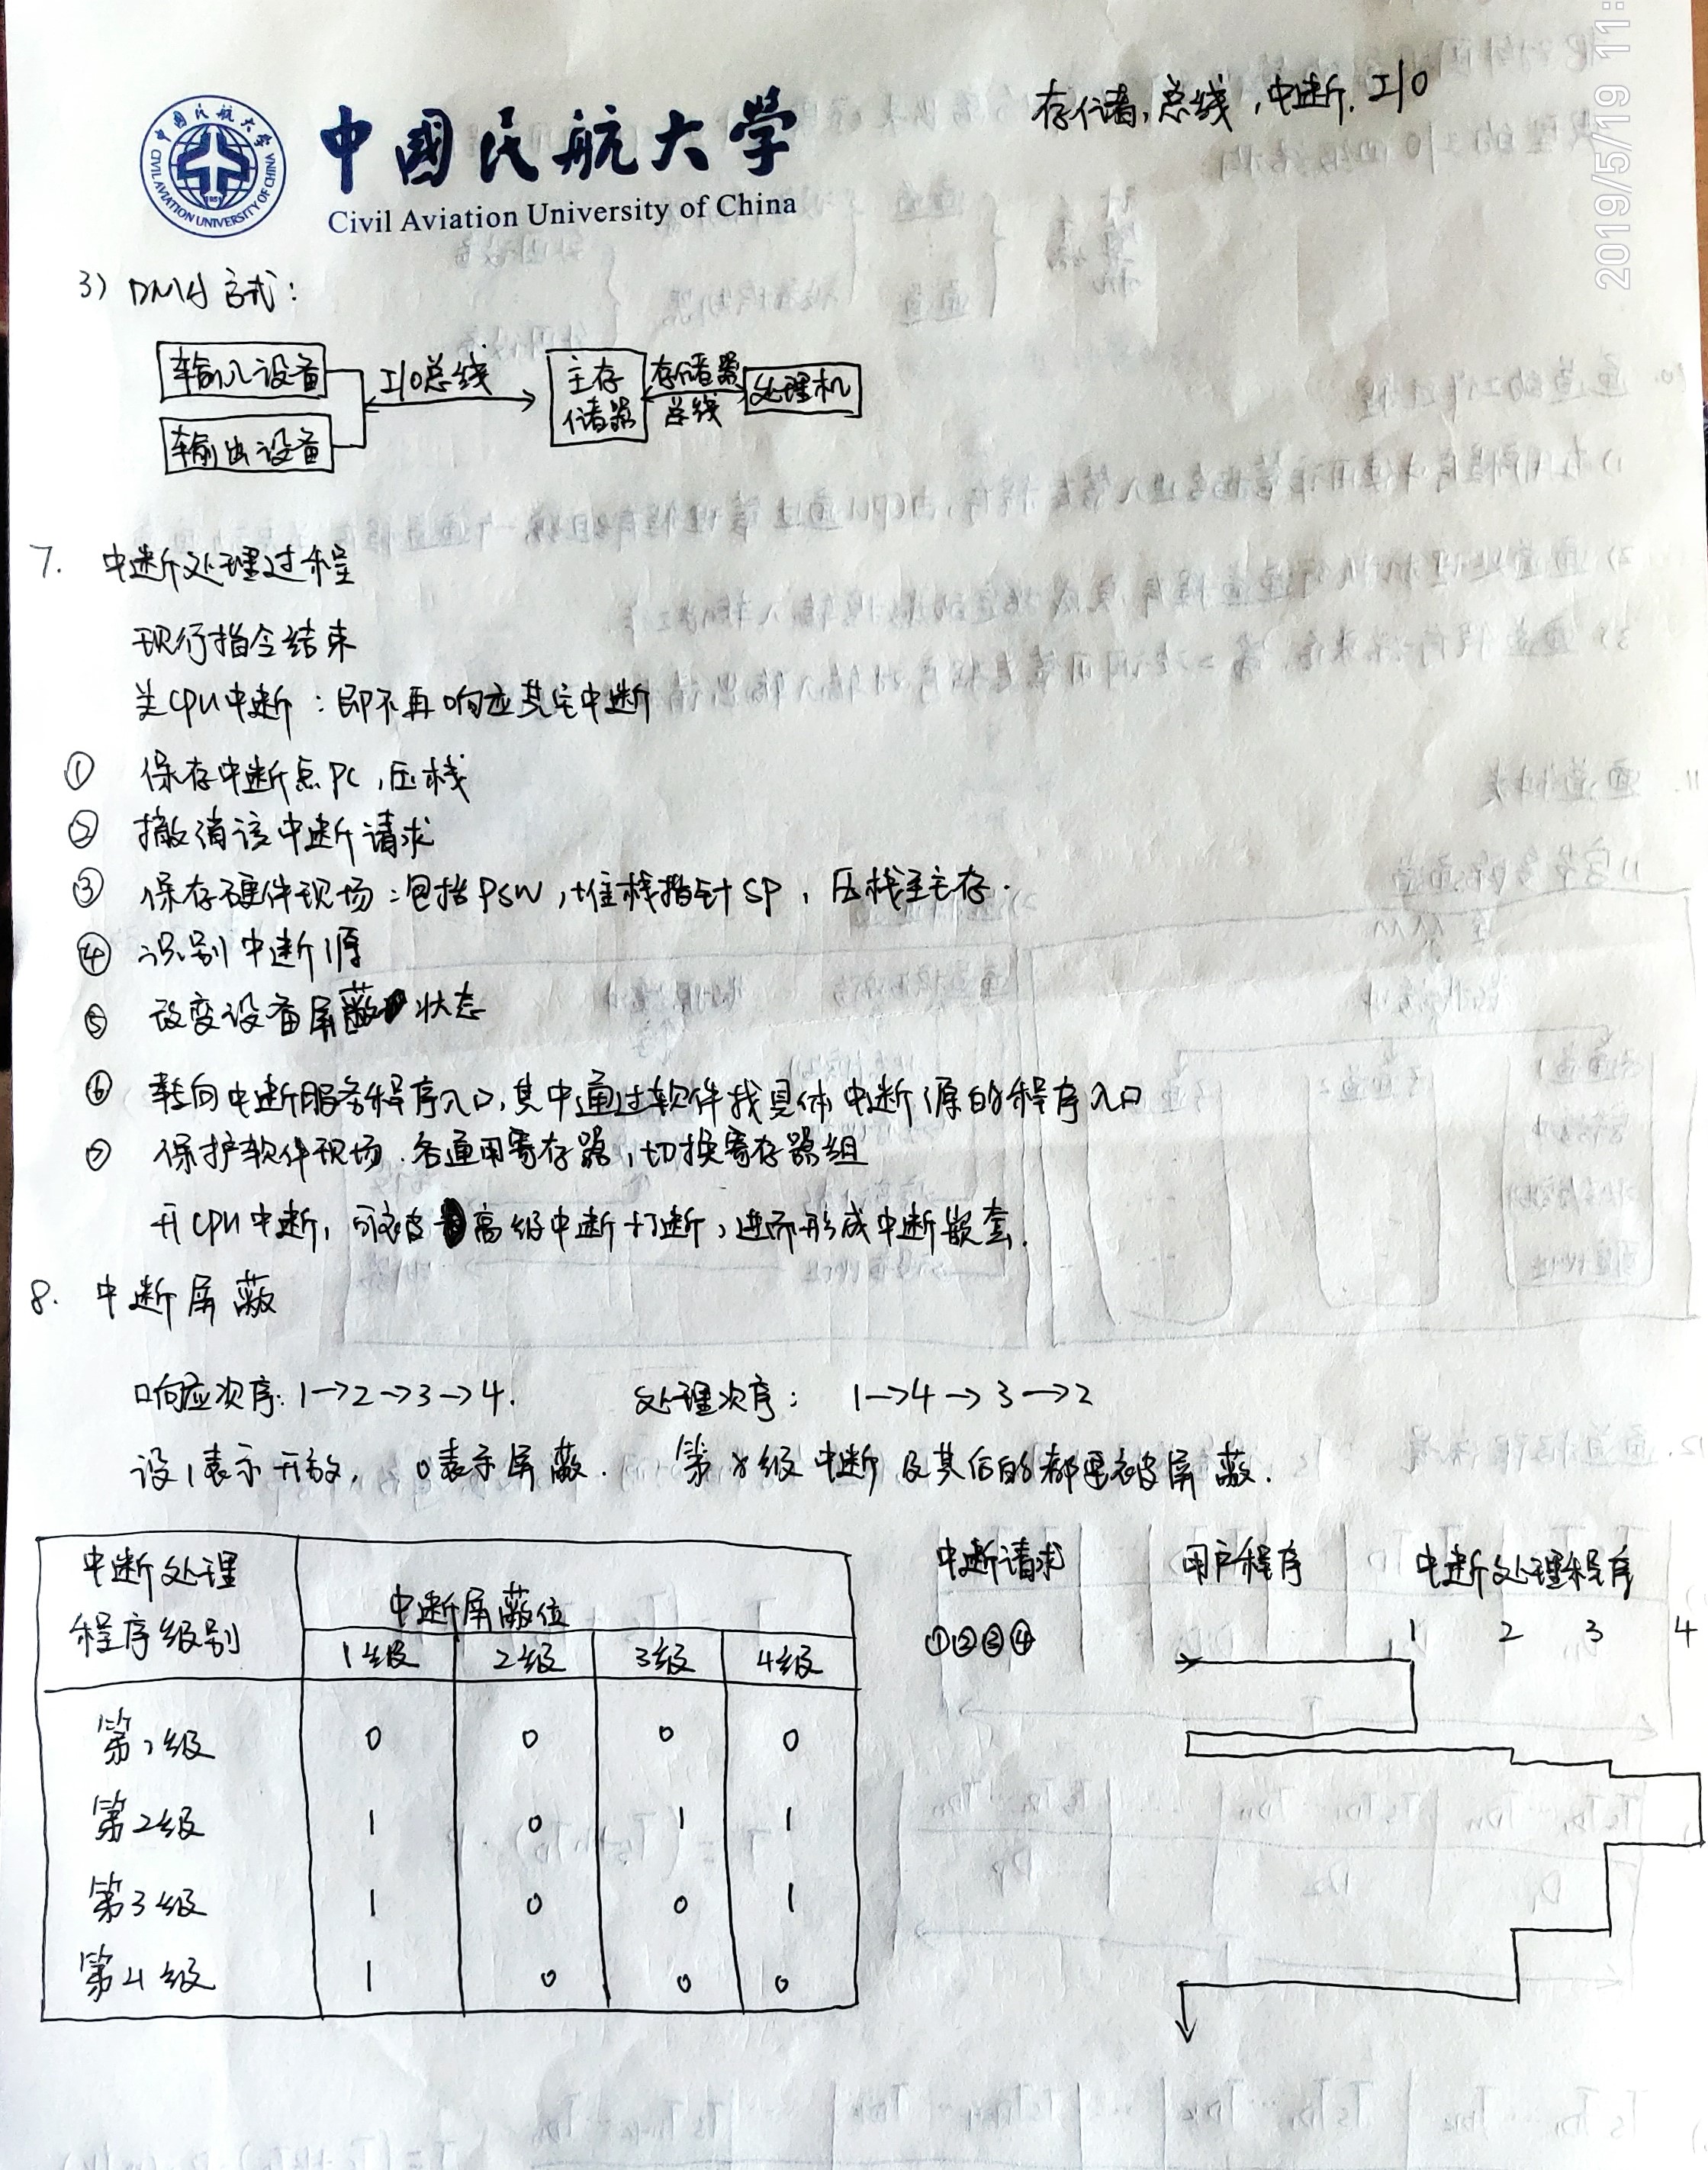 2019/5/19 11:
存储, 总线, 中断, I/O
中國民航大学
Civil Aviation University of China
中國民航大学
CIVIL AVIATION UNIVERSITY OF CHINA
1951
3) DMA方式:
输入设备
输出设备
I/O总线
主存储器
存储器总线
处理机
7. 中断处理过程
现行指令结束
关CPU中断:即不再响应其它中断
① 保存中断点PC,压栈
② 撤消该中断请求
③ 保存硬件现场:包括PSW,堆栈指针SP,压栈至主存.
④ 识别中断源
⑤ 改变设备屏蔽状态
⑥ 转向中断服务程序入口,其中通过软件找具体中断源的程序入口
⑦ 保护软件现场.各通用寄存器,切换寄存器组
开CPU中断,可被高级中断打断,进而形成中断嵌套.
8. 中断屏蔽
响应次序:1→2→3→4. 处理次序: 1→4→3→2
设1表示开放, 0表示屏蔽. 第x级中断及其后的都要被屏蔽.
中断处理程序级别 中断屏蔽位
1级 2级 3级 4级
第1级 0 0 0 0
第2级 1 0 1 1
第3级 1 0 0 1
第4级 1 0 0 0
中断请求 用户程序 中断处理程序
①②③④ 1 2 3 4